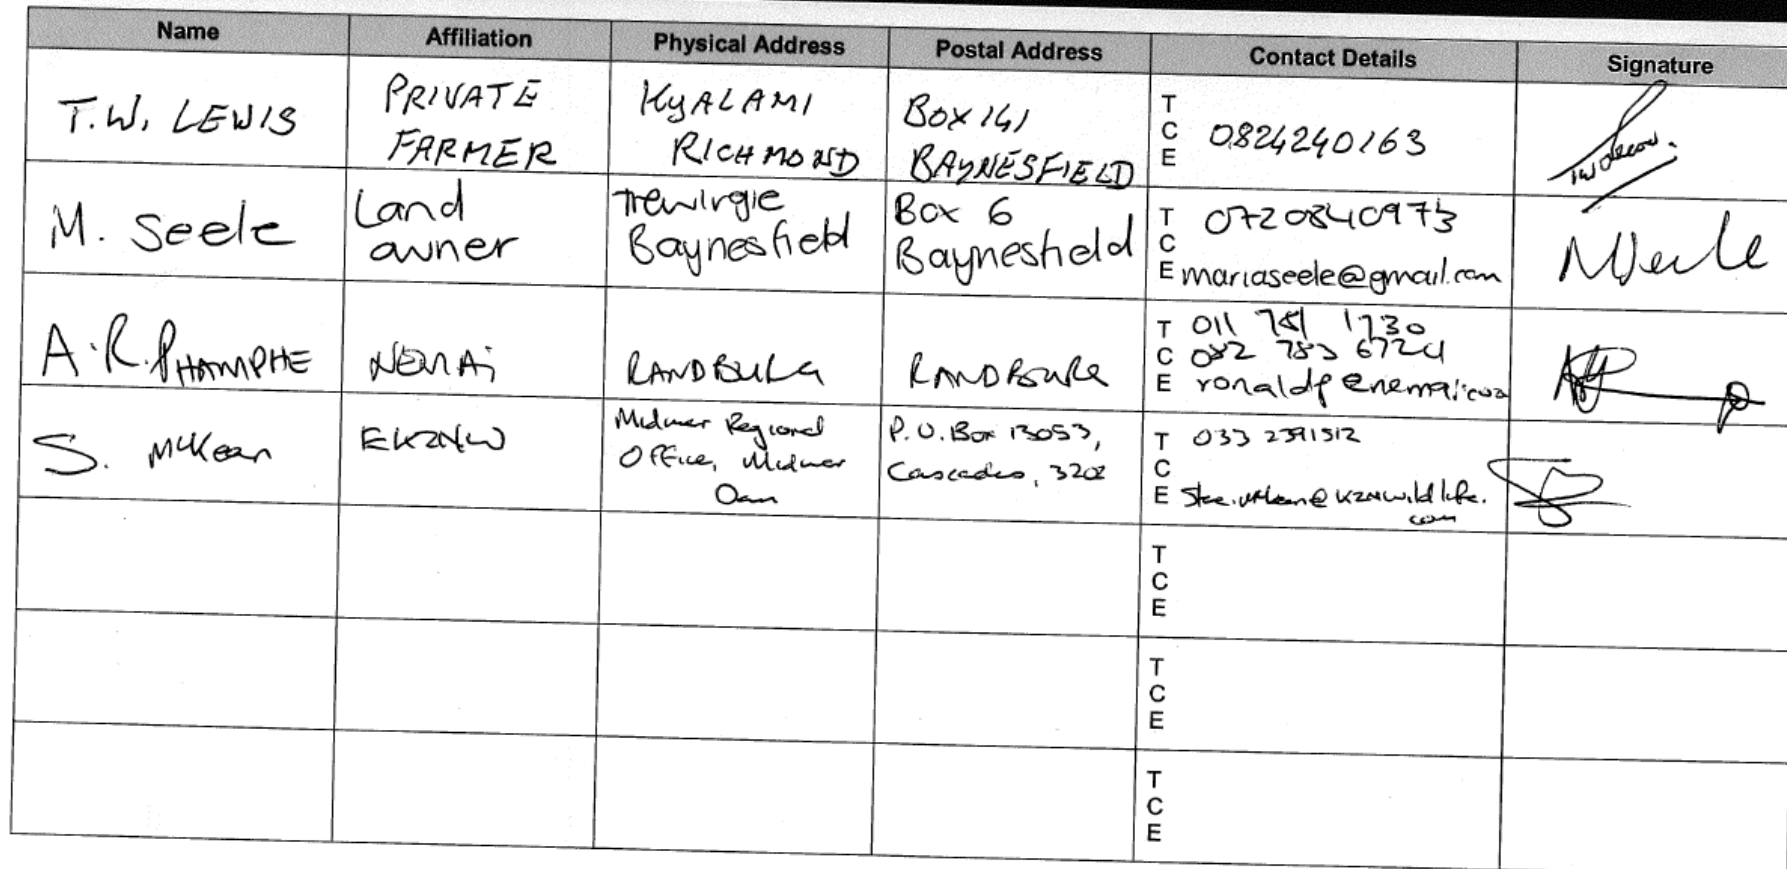 Name Affiliation Physical Address Postal Address Contact Details Signature
T.W. LEWIS
PRIVATE
FARMER
KyALAMI
RICHMOND
BOX 141
BAYNESFIELD
T
C 0824240163
E
M. Seele
Land
owner
Trewirgie
Baynesfield
Box 6
Baynesfield
T 0720840973
C
E mariaseele@gmail.com
A.R. PHAMPHE
NEMAi
RANDBURG
RANDBURG
T 011 781 1730
C 082 783 6724
E
S. McKean
EKZNW
Midmar Regional
Office, Midmar
Dam
P.O. Box 13053,
Cascades, 3202
T 033 2391512
C
E
T
C
E
T
C
E
T
C
E